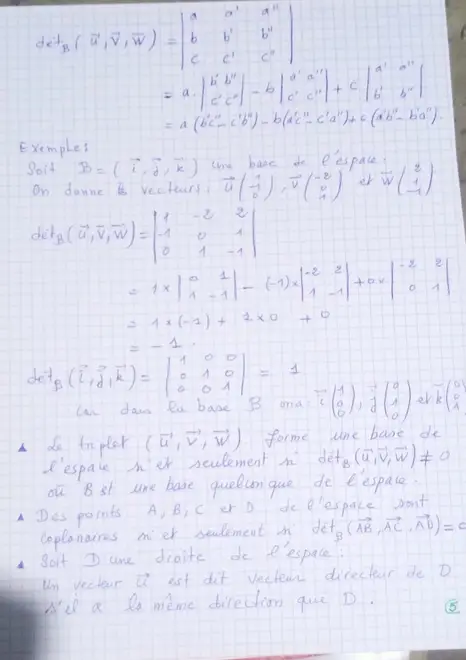 dét_B(u⃗, v⃗, w⃗) = | a a' a" |
| b b' b" |
| c c' c" |
= a. | b' b" ; c' c" | - b | a' a" ; c' c" | + c | a' a" ; b' b" |
= a (b'c" - c'b") - b(a'c" - c'a") + c (a'b" - b'a").
Exemples
Soit B = (i⃗, j⃗, k⃗) une base de l'espace.
On donne les vecteurs: u⃗ (1 ; -1 ; 0), v⃗ (-2 ; 0 ; 1) et w⃗ (2 ; 1 ; -1)
dét_B(u⃗, v⃗, w⃗) = | 1 -2 2 |
| -1 0 1 |
| 0 1 -1 |
= 1 × | 0 1 ; 1 -1 | - (-1) × | -2 2 ; 1 -1 | + 0 × | -2 2 ; 0 1 |
= 1 × (-1) + 1 × 0 + 0
= -1.
dét_B(i⃗, j⃗, k⃗) = | 1 0 0 | = 1
| 0 1 0 |
| 0 0 1 |
car dans la base B on a: i⃗ (1 ; 0 ; 0), j⃗ (0 ; 1 ; 0) et k⃗ (0 ; 0 ; 1)
▲ Le triplet (u⃗, v⃗, w⃗) forme une base de
l'espace si et seulement si dét_B(u⃗, v⃗, w⃗) ≠ 0
où B est une base quelconque de l'espace.
▲ Des points A, B, C et D de l'espace sont
coplanaires si et seulement si dét_B(AB⃗, AC⃗, AD⃗) = 0
▲ Soit D une droite de l'espace.
Un vecteur u⃗ est dit vecteur directeur de D
s'il a la même direction que D.
5